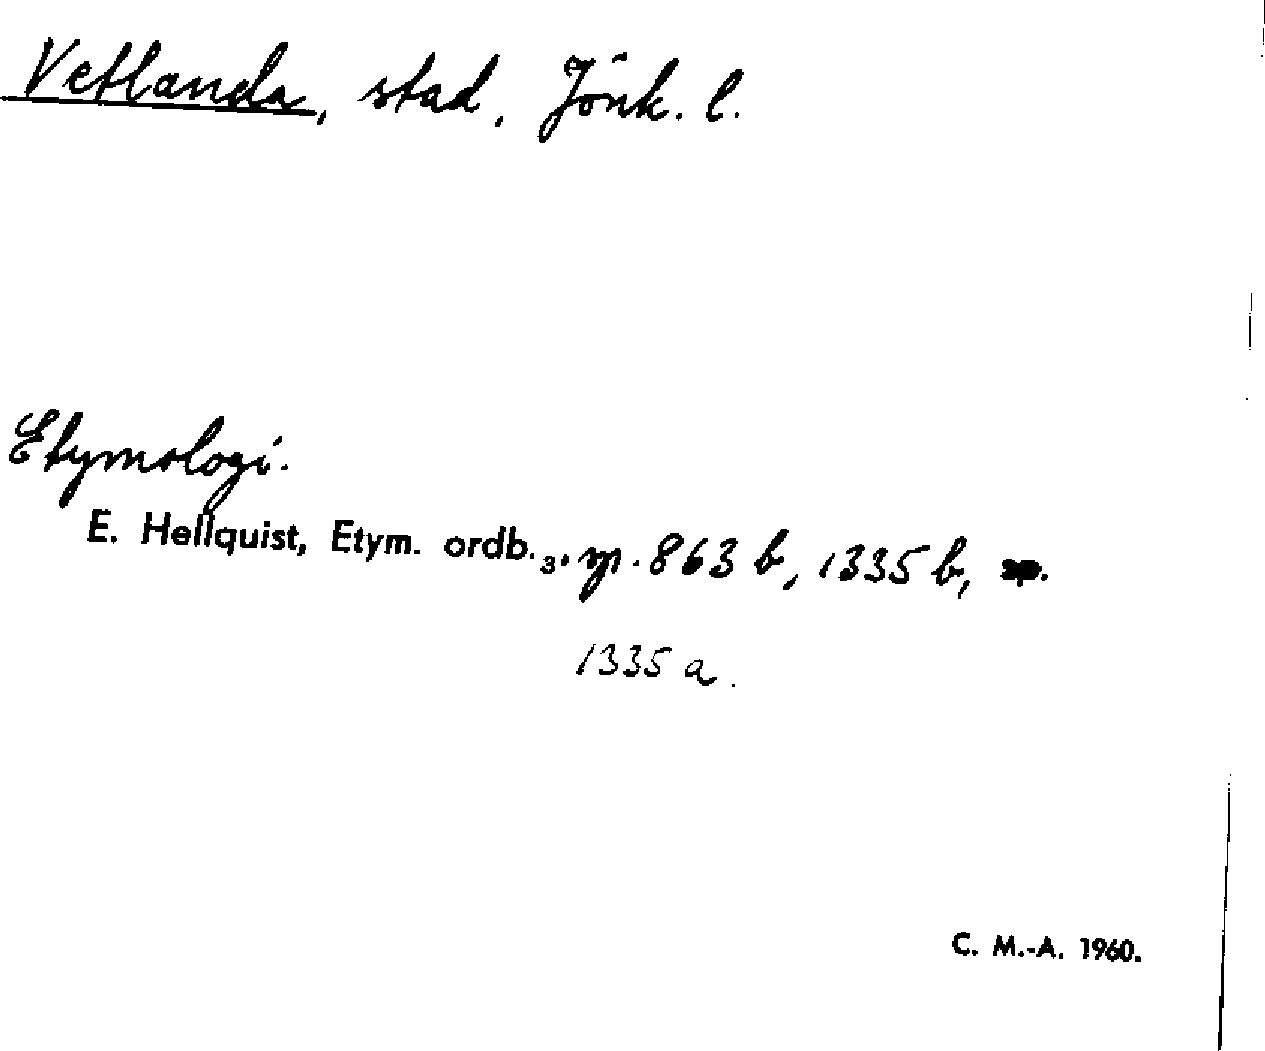 Vetlanda, stad, Jönk. l.
Etymologi.
E. Hellquist, Etym. ordb. 3. sp. 863 b, 1335 b,
1335 a.
C. M.-A. 1960.